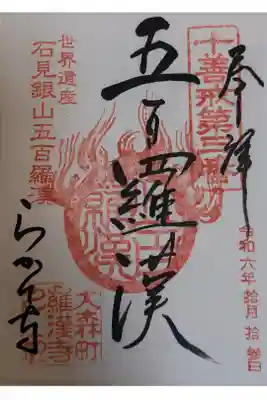 奉拝
十善戒第三番
令和六年拾月拾
五百羅漢
世界遺産
石見銀山五百羅漢
らかん寺
大森町
羅漢寺